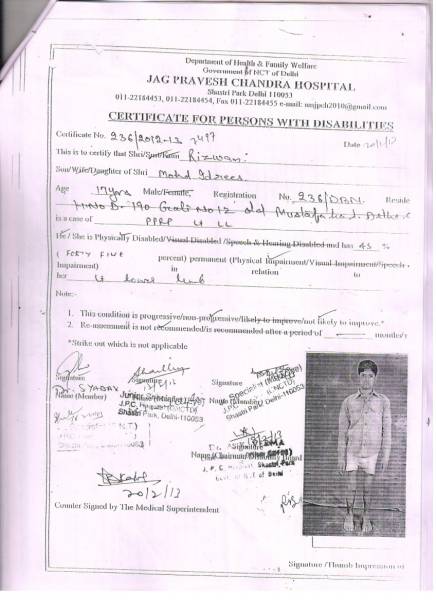 Department of Health & Family Welfare
Government of NCT of Delhi
JAG PRAVESH CHANDRA HOSPITAL
Shastri Park Delhi 110053
011-22184453, 011-22184454, Fax 011-22184455 e-mail: msjpch2010@gmail.com
CERTIFICATE FOR PERSONS WITH DISABILITIES
Certificate No. 236/2012-13 Date 20/2/13
This is to certify that Shri/Smt/Kum Rizwan
Son/Wife/Daughter of Shri Mohd Idrees
Age 17 yrs Male/Female, Registration No. 236/DBN. Reside
H.No B-190 Gali No 12 old Mustafabad, Delhi
is a case of PPRP Lt LL
He / She is Physically Disabled/Visual Disabled /Speech & Hearing Disabled and has 45 %
( FORTY FIVE percent) permanent (Physical Impairment/Visual Impairment/Speech
Impairment) in relation to
her Lt Lower limb
Note:-
1. This condition is progressive/non-progressive/likely to improve/not likely to improve.*
2. Re-assessment is not recommended/is recommended after a period of months/
*Strike out which is not applicable
Signature Signature Signature
Name (Member) Name (Member)
J.P.C. Hospital (NCTD)
Shastri Park, Delhi-110053
Specialist
J.P.C. (NCTD)
Shastri Park, Delhi-110053
Signature
Name (Chairman Disability Board
J. P. C. Hospital Shastri Park
Govt. of N.C.T of Delhi
20/2/13
Counter Signed by The Medical Superintendent
Signature /Thumb Impression of